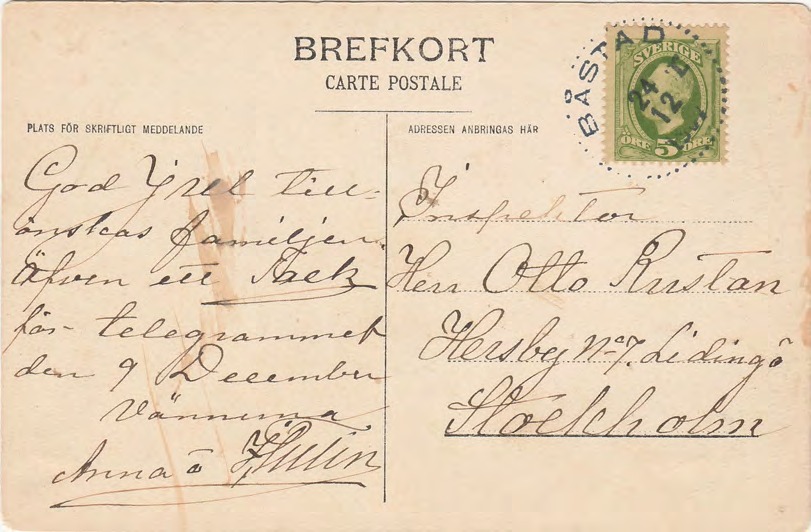 BREFKORT
CARTE POSTALE
BÅSTAD
24
12
SVERIGE
ÖRE 5 ÖRE
PLATS FÖR SKRIFTLIGT MEDDELANDE
God Jul till-
önskas familjen.
Äfven ett Tack
för telegrammet
den 9 December
Vännerna
Anna o Hulin
ADRESSEN ANBRINGAS HÄR
Inspektor
Herr Otto Rustan
Hersby No 7. Lidingö
Stockholm